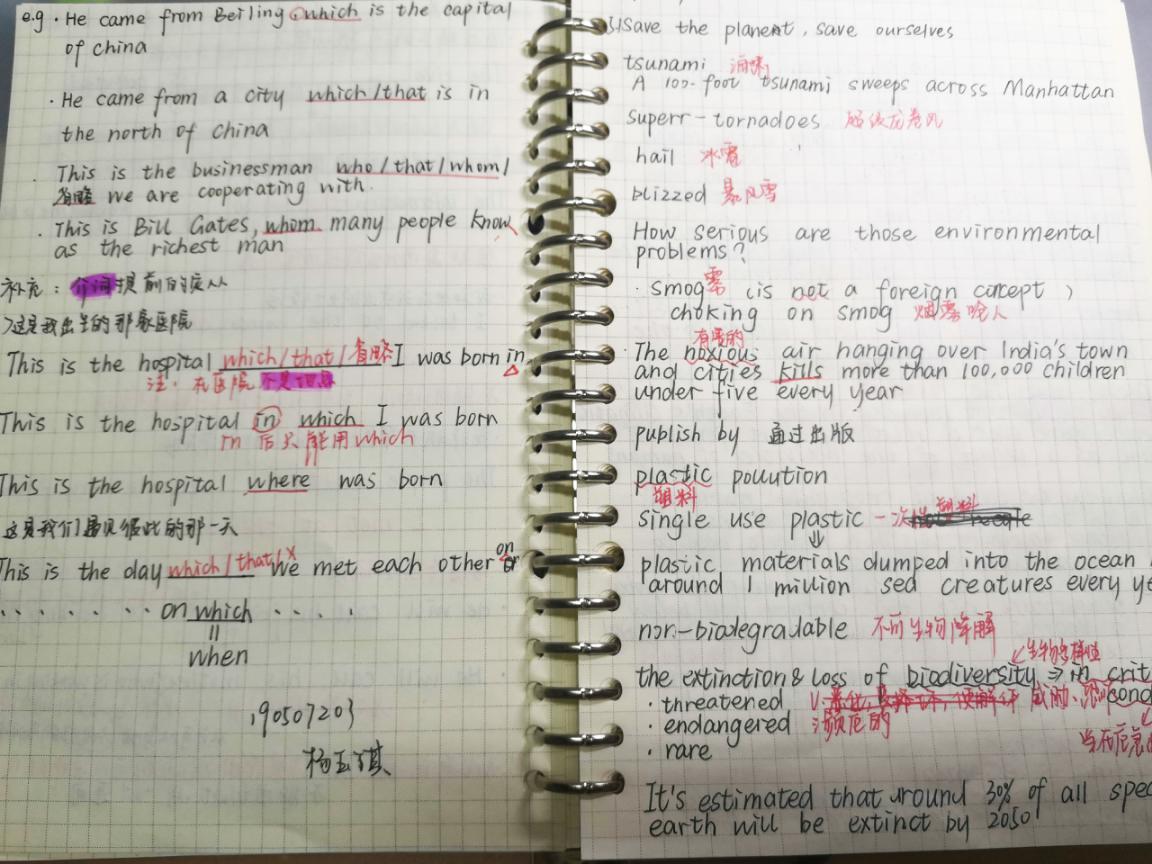 e.g · He came from Beijing, which is the capital
of china
· He came from a city which/that is in
the north of china
· This is the businessman who/that/whom/
省略 we are cooperating with.
· This is Bill Gates, whom many people know
as the richest man
补充：介词提前的定从
>这是我出生的那家医院
This is the hospital which/that/省略 I was born in
注：在医院
This is the hospital in which I was born
in 后只能用which
This is the hospital where was born
这是我们遇见彼此的那一天
This is the day which/that/x we met each other on
. . . . . . . on which . . . .
||
when
190507203
杨玉琪
Save the planet, save ourselves
tsunami 海啸
A 100-foot tsunami sweeps across Manhattan
superr-tornadoes 超级龙卷风
hail 冰雹
blizzed 暴风雪
How serious are those environmental
problems?
· smog 雾 (is not a foreign concept)
choking on smog 烟雾呛人
有毒的
· The noxious air hanging over India's town
and cities kills more than 100,000 children
under five every year
publish by 通过出版
plastic pollution
塑料
single use plastic 一次性塑料
plastic materials dumped into the ocean
around 1 million sea creatures every
non-biodegradable 不可生物降解
生物多样性
the extinction & loss of biodiversity ⇒ in
· threatened
· endangered 濒危的
· rare
It's estimated that around 30% of all
earth will be extinct by 2050